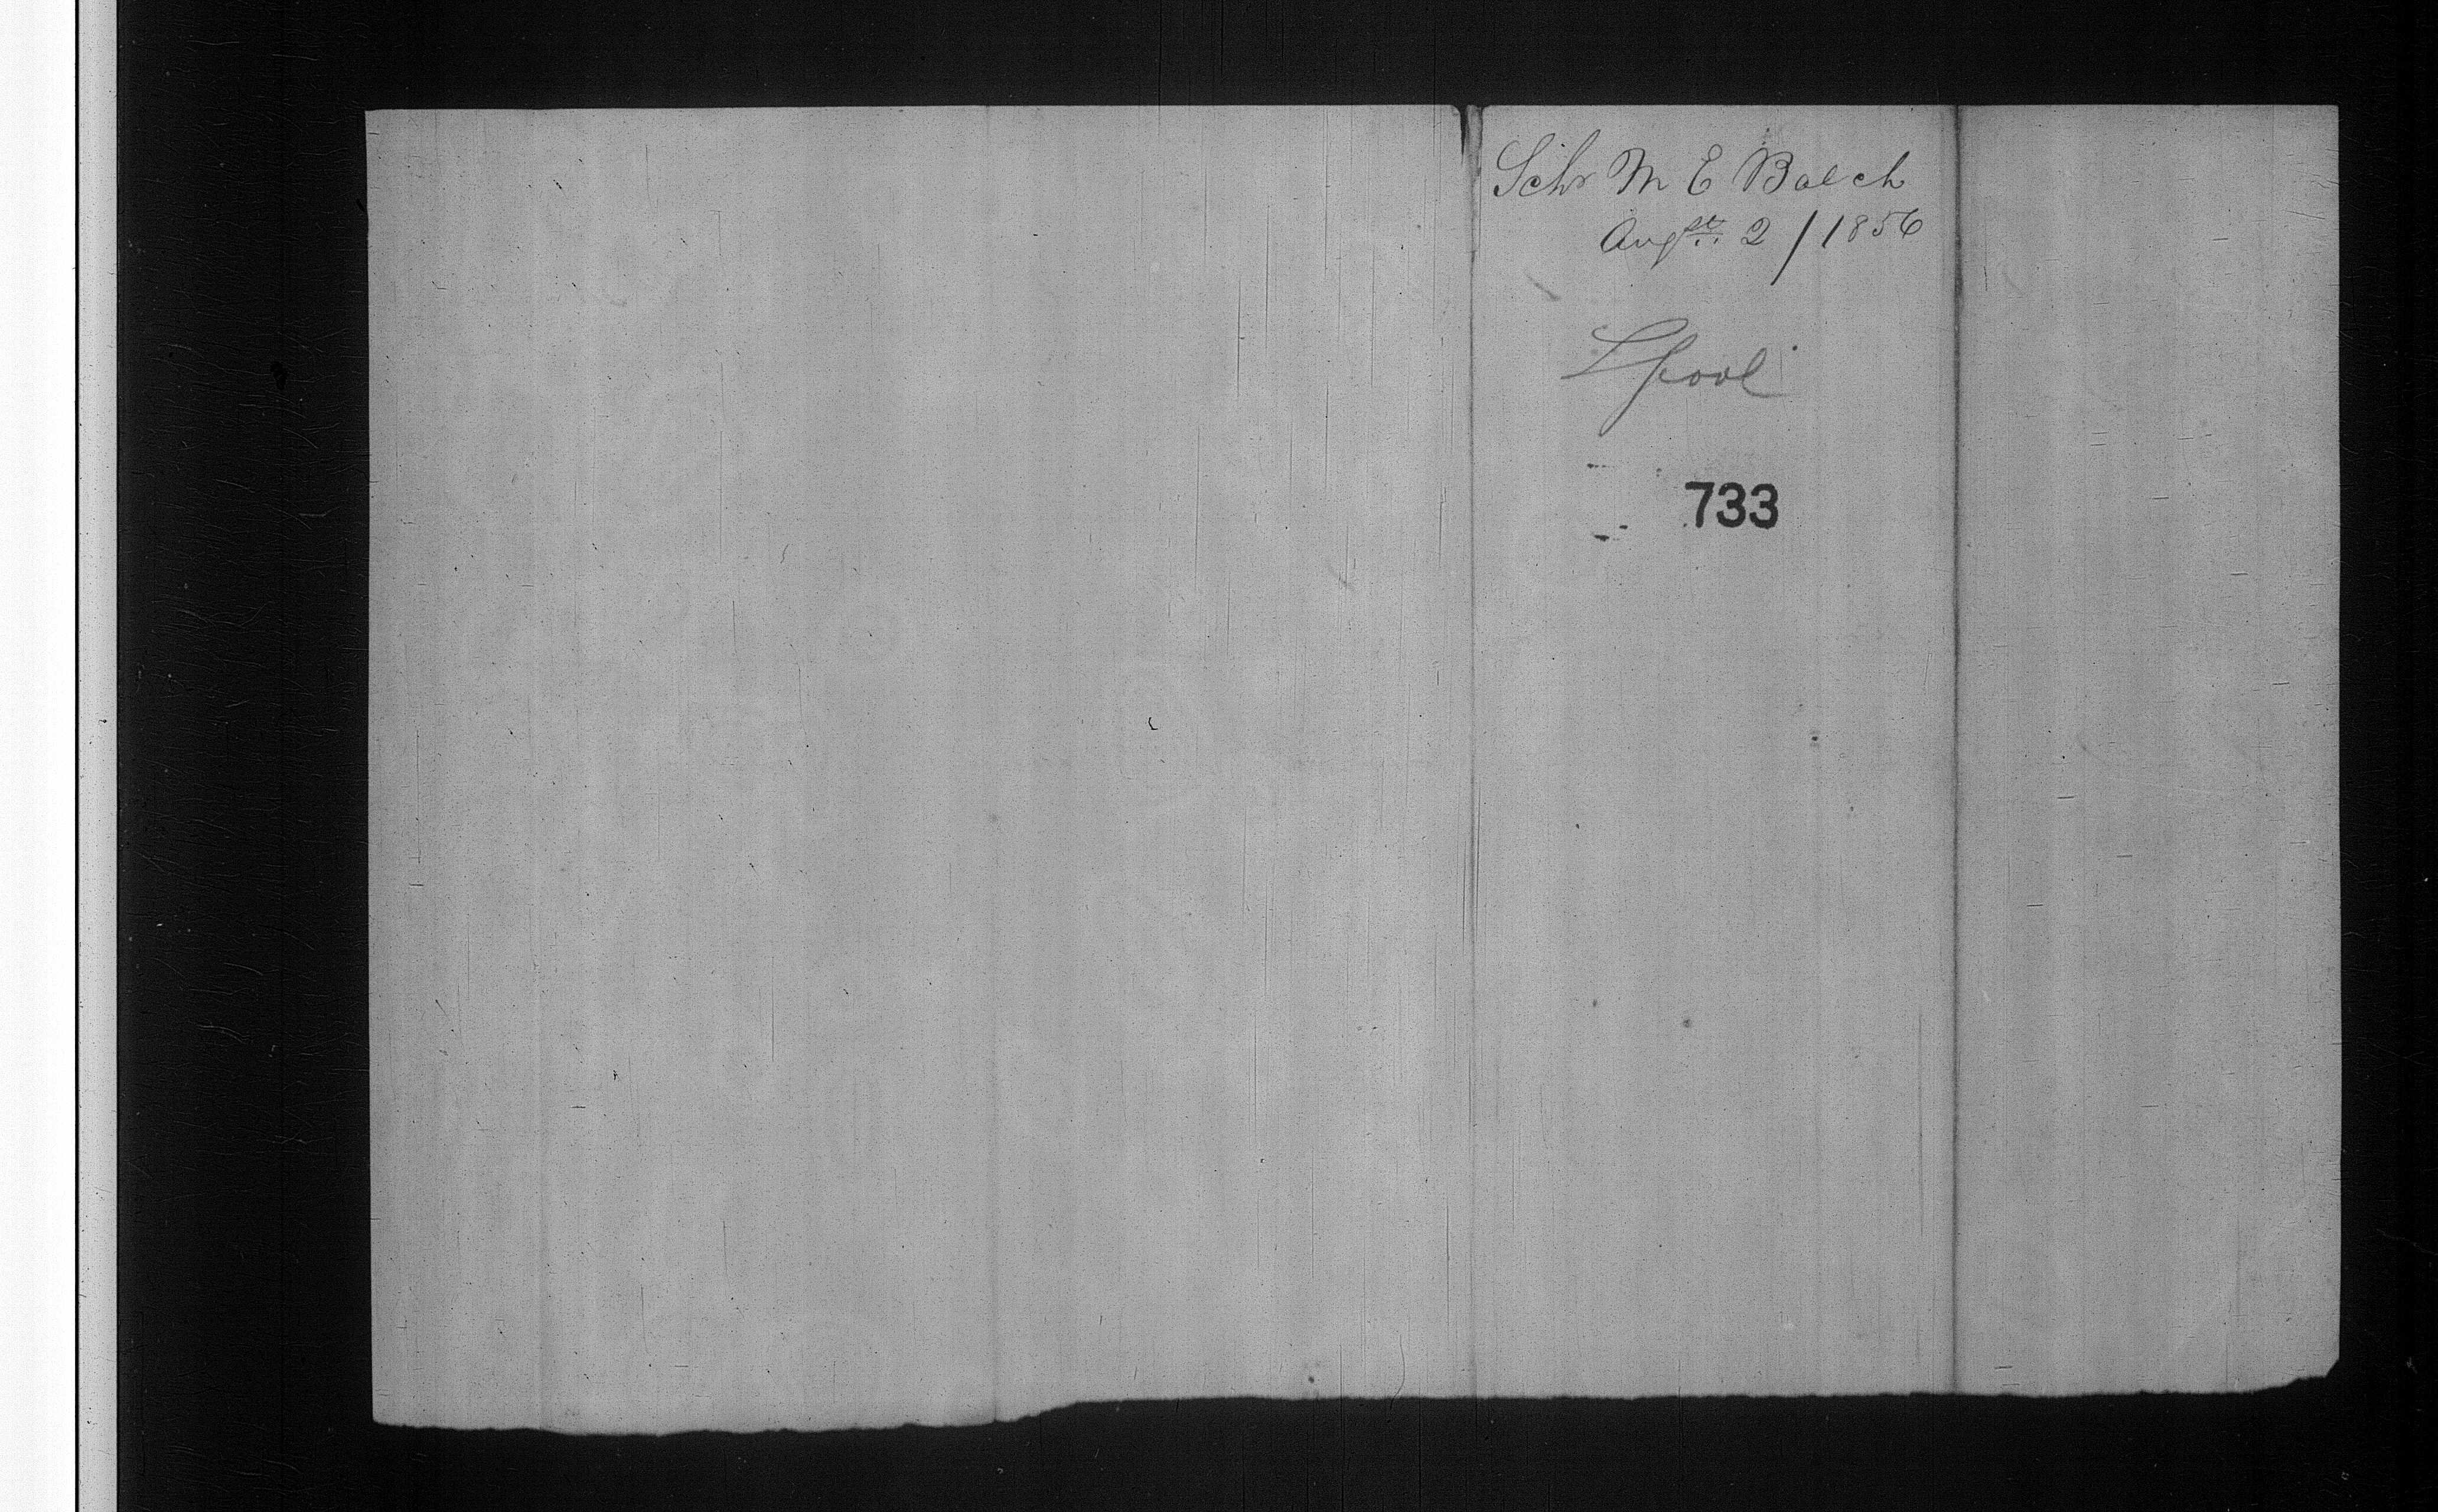 Schr M E Balch
Augst 2 / 1856
Lpool
733